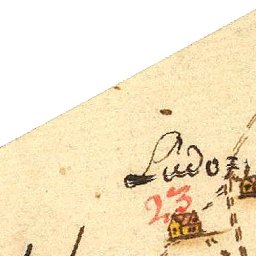 Ludoz
23